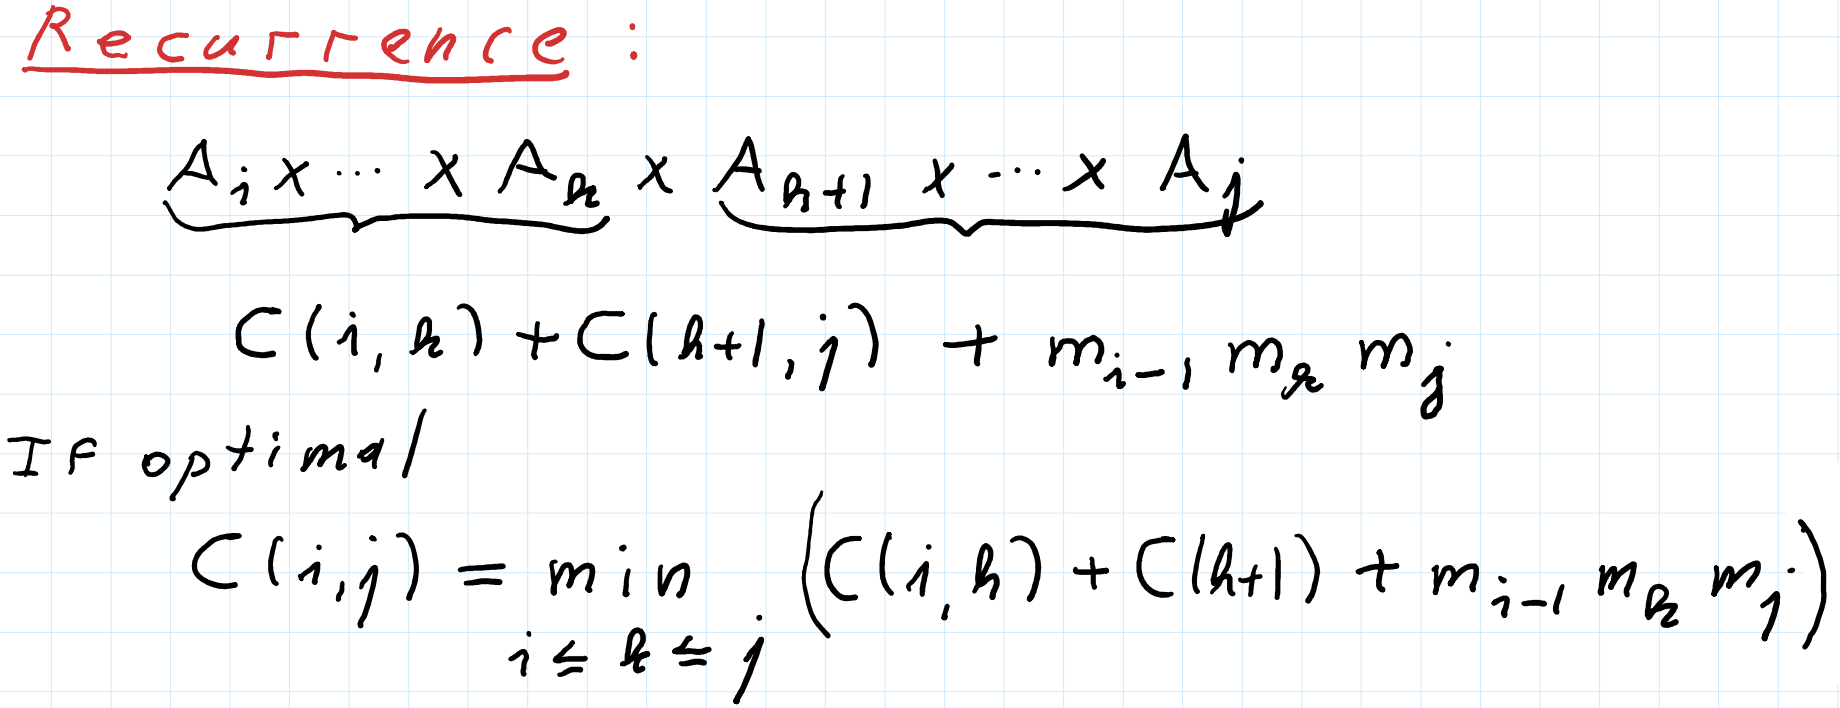 Recurrence :
A_i x ... x A_k x A_{k+1} x ... x A_j
C(i, k) + C(k+1, j) + m_{i-1} m_k m_j
If optimal
C(i,j) = min (C(i,k) + C(k+1) + m_{i-1} m_k m_j)
i ≤ k ≤ j